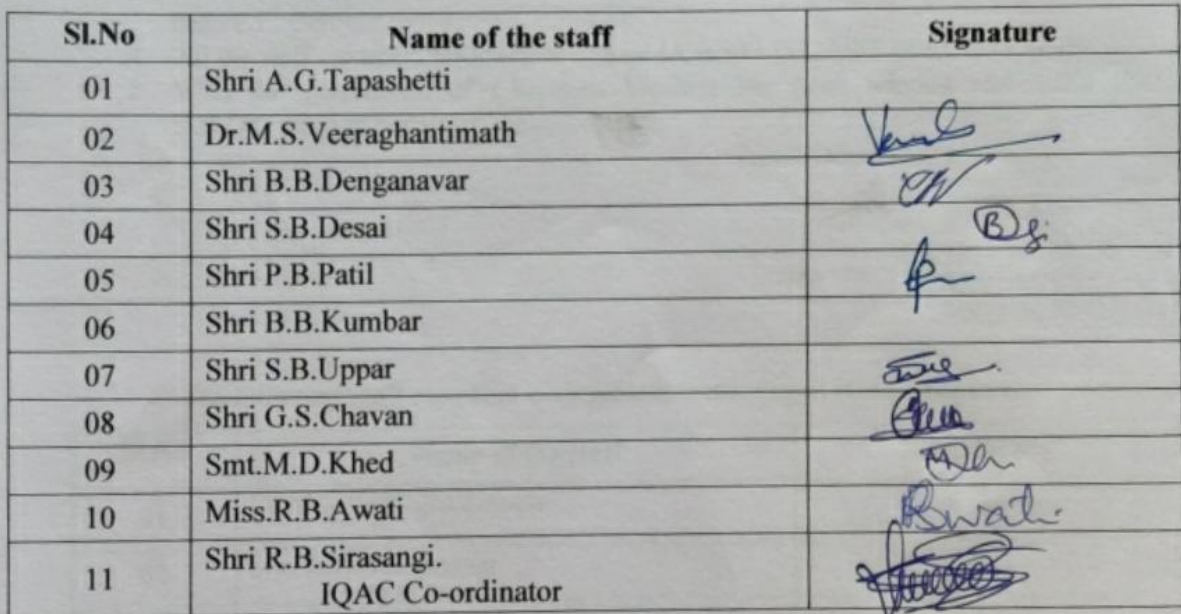 Sl.No Name of the staff Signature
01 Shri A.G.Tapashetti
02 Dr.M.S.Veeraghantimath
03 Shri B.B.Denganavar
04 Shri S.B.Desai
05 Shri P.B.Patil
06 Shri B.B.Kumbar
07 Shri S.B.Uppar
08 Shri G.S.Chavan
09 Smt.M.D.Khed
10 Miss.R.B.Awati
11 Shri R.B.Sirasangi.
IQAC Co-ordinator